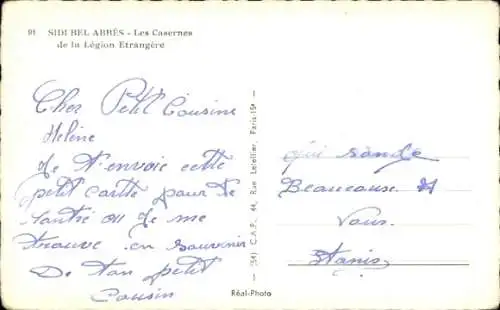 91 SIDI BEL ABBÈS - Les Casernes
de la Légion Etrangère
Cher Petit Cousine
Hélène
Je T'envoie cette
petit cartte pour te
ou Je me
trouve en souvenir
De ton petit
Cousin
(54) C.A.P. 44, Rue Letellier, Paris-15e
Réal-Photo
qui
Beaucouse
Vous
Stanis